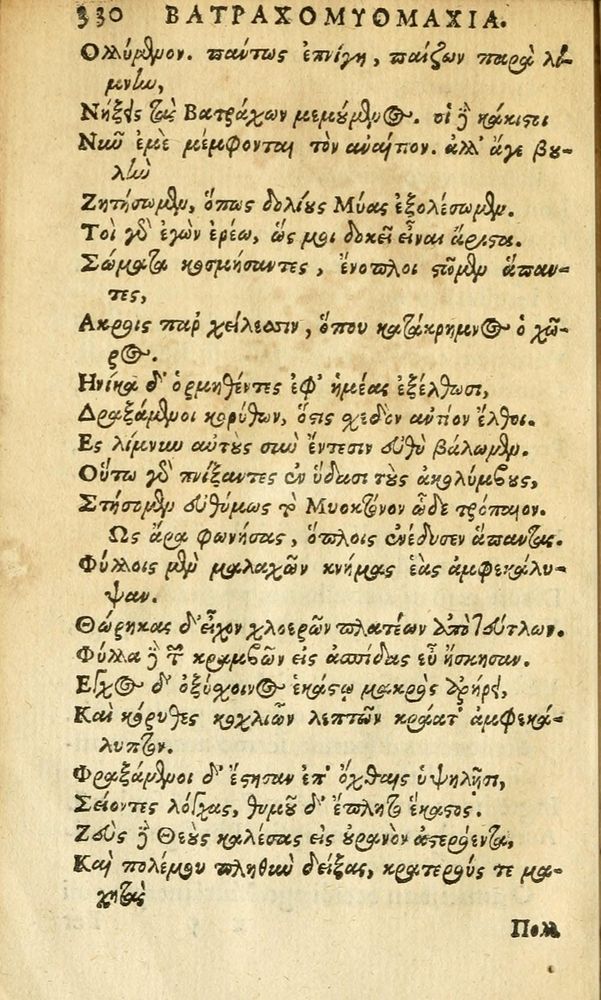 330 ΒΑΤΡΑΧΟΜΥΟΜΑΧΙΑ.
Ολλύμενον. πάντως ἐπνίγη, παίζων παρὰ λί-
μνην,
Νήξεις τὰς Βατράχων μεμούμενος. οἱ δὲ κάκιστοι
Νῦν ἐμὲ μέμφονται τὸν ἀναίτιον. ἀλλ' ἄγε βου-
λὴν
Ζητήσωμεν, ὅπως δολίους Μύας ἐξολέσωμεν.
Τοὶ γὰρ ἐγὼν ἐρέω, ὥς μοι δοκεῖ εἶναι ἄριστα.
Σώματα κοσμήσαντες, ἔνοπλοι στῶμεν ἅπαν-
τες,
Ακροις παρ χείλεσσιν, ὅπου κατάκρημνος ὁ χῶ-
ρος.
Ηνίκα δ' ὁρμηθέντες ἐφ' ἡμέας ἐξέλθωσι,
Δραξάμενοι κορύθων, ὅστις σχεδὸν ἀντίον ἔλθοι.
Ες λίμνην αὐτοὺς σὺν ἔντεσιν εὐθὺ βάλωμεν.
Οὕτω γὰρ πνίξαντες ἐν ὕδασι τοὺς ἀκολύμβους,
Στήσομεν εὐθύμως τὸ Μυοκτόνον ὧδε τρόπαιον.
Ως ἄρα φωνήσας, ὅπλοις ἐνέδυσεν ἅπαντας.
Φύλλοις μὲν μαλαχῶν κνήμας ἑὰς ἀμφεκάλυ-
ψαν.
Θώρηκας δ' εἶχον χλοερῶν πλατέων ἀπὸ σεύτλων.
Φύλλα δὲ τῶν κραμβῶν εἰς ἀσπίδας εὖ ἤσκησαν.
Εγχος δ' ὀξύσχοινος ἑκάστῳ μακρὸς ἀρήρει,
Καὶ κόρυθες κοχλιῶν λεπτῶν κράατ' ἀμφεκά-
λυπτον.
Φραξάμενοι δ' ἔστησαν ἐπ' ὄχθαις ὑψηλῇσι,
Σείοντες λόγχας, θυμοῦ δ' ἔπλητο ἕκαστος.
Ζεὺς δὲ Θεοὺς καλέσας εἰς οὐρανὸν ἀστερόεντα,
Καὶ πολέμου πληθὺν δείξας, κρατερούς τε μα-
χητὰς
Πολλ